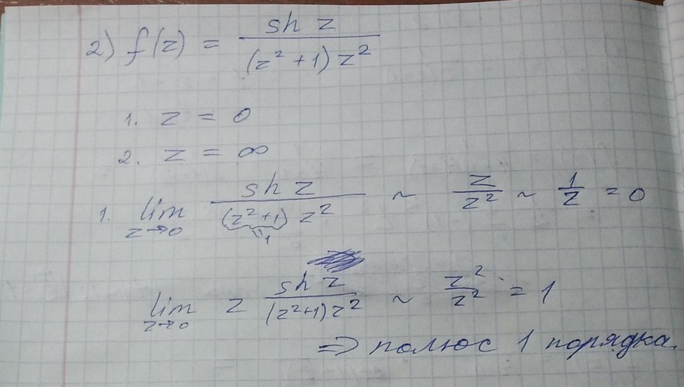 2) f(z) = sh z / ((z² + 1) z²)
1. z = 0
2. z = ∞
1. lim z→0 sh z / ((z²+1) z²) ~ z / z² ~ 1 / z = 0
1
lim z→0 z sh z / ((z²+1) z²) ~ z² / z² = 1
⇒ полюс 1 порядка